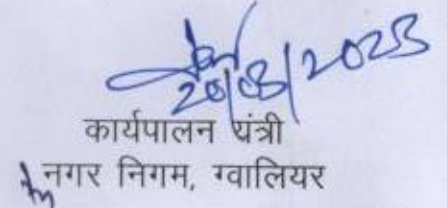 20/03/2023
कार्यपालन यंत्री
नगर निगम, ग्वालियर